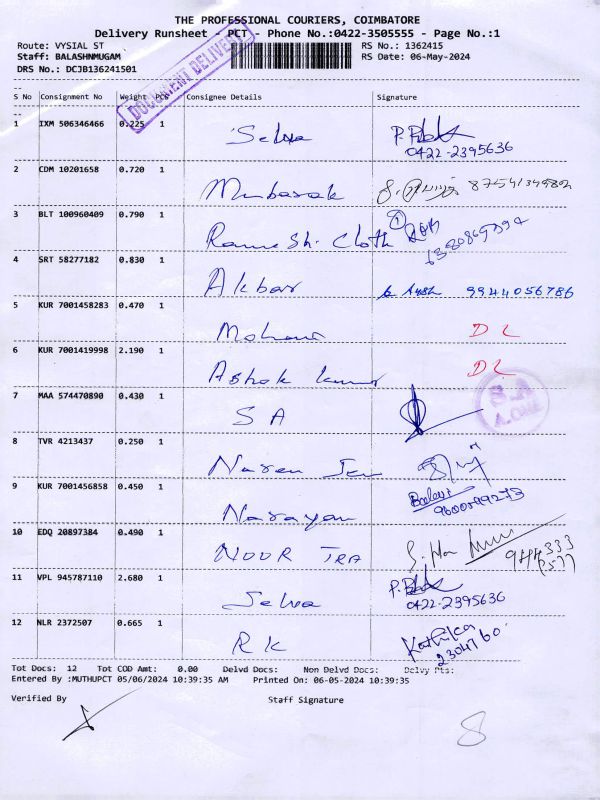 THE PROFESSIONAL COURIERS, COIMBATORE
Delivery Runsheet - PCT - Phone No.:0422-3505555 - Page No.:1
Route: VYSIAL ST RS No.: 1362415
Staff: BALASHNMUGAM RS Date: 06-May-2024
DRS No.: DCJB136241501
DOCUMENT DELIVERY
S No Consignment No Weight PCS Consignee Details Signature
1 IXM 506346466 0.225 1
Selva
0422-2395636
2 CDM 10201658 0.720 1
Mubarak 87541349802
3 BLT 100960409 0.790 1
Ramesh. Cloth
4 SRT 58277182 0.830 1
Akbar 9944056786
5 KUR 7001458283 0.470 1
DL
6 KUR 7001419998 2.190 1
Ashok kumar DL
7 MAA 574470890 0.430 1
S A
S.A
8 TVR 4213437 0.250 1
Naren
9 KUR 7001456858 0.450 1
Narayan
10 EDQ 20897384 0.490 1
NOOR TRA
11 VPL 945787110 2.680 1
Selva
0422-2395636
12 NLR 2372507 0.665 1
R K
Karthika
2304760
Tot Docs: 12 Tot COD Amt: 0.00 Delvd Docs: Non Delvd Docs: Delvy Pts:
Entered By :MUTHUPCT 05/06/2024 10:39:35 AM Printed On: 06-05-2024 10:39:35
Verified By Staff Signature
8